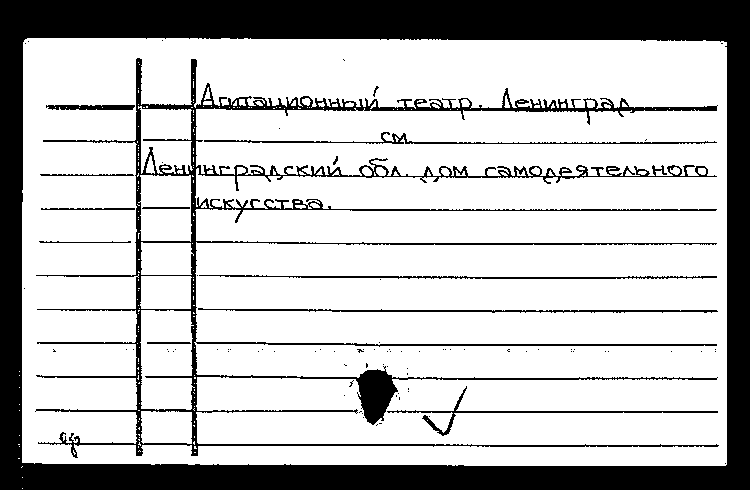 Агитационный театр. Ленинград
см
Ленинградский обл. дом самодеятельного
искусства.